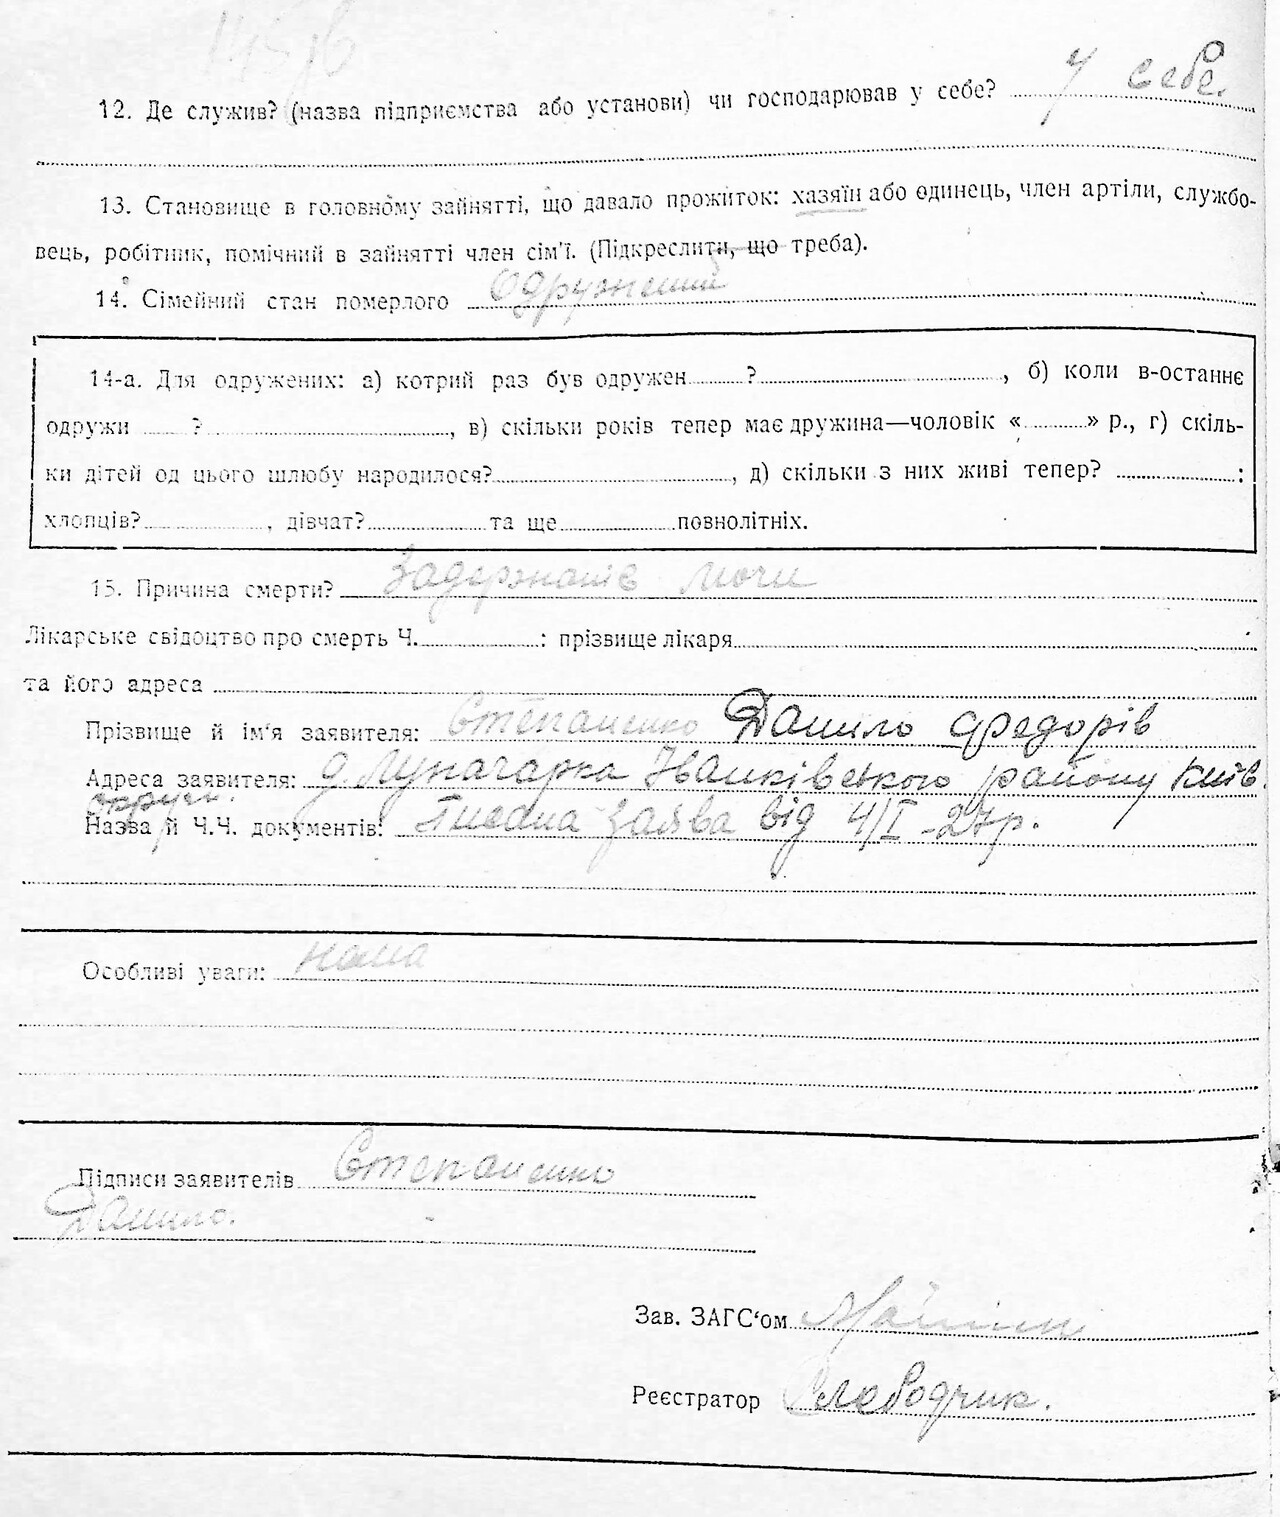 12. Де служив? (назва підприємства або установи) чи господарював у себе? У себе.
13. Становище в головному зайнятті, що давало прожиток: хазяїн або одинець, член артіли, службо-
вець, робітник, помічний в зайнятті член сім'ї. (Підкреслити, що треба).
14. Сімейний стан померлого Одружений
14-а. Для одружених: а) котрий раз був одружен ? , б) коли в-останнє
одружи ? , в) скільки років тепер має дружина—чоловік « » р., г) скіль-
ки дітей од цього шлюбу народилося? , д) скільки з них живі тепер? :
хлопців? , дівчат? та ще повнолітніх.
15. Причина смерти? Задержаніє мочи
Лікарське свідоцтво про смерть Ч. : прізвище лікаря
та його адреса
Прізвище й ім'я заявителя: Степаненко Данило Федорів
Адреса заявителя: д. Луначарка Іванківського району Київ.
округи.
Назва й Ч.Ч. документів: Писана заява від 4/I -27р.
Особливі уваги: нема
Підписи заявителів Степаненко
Данило.
Зав. ЗАГС‘ом
Реєстратор Слободчик.